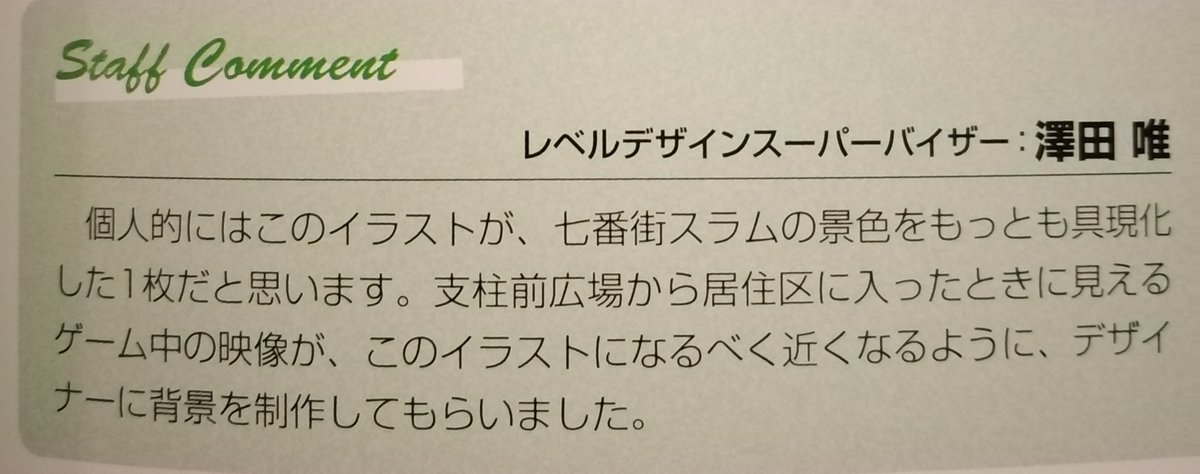 Staff Comment
レベルデザインスーパーバイザー：澤田 唯
個人的にはこのイラストが、七番街スラムの景色をもっとも具現化
した1枚だと思います。支柱前広場から居住区に入ったときに見える
ゲーム中の映像が、このイラストになるべく近くなるように、デザイ
ナーに背景を制作してもらいました。